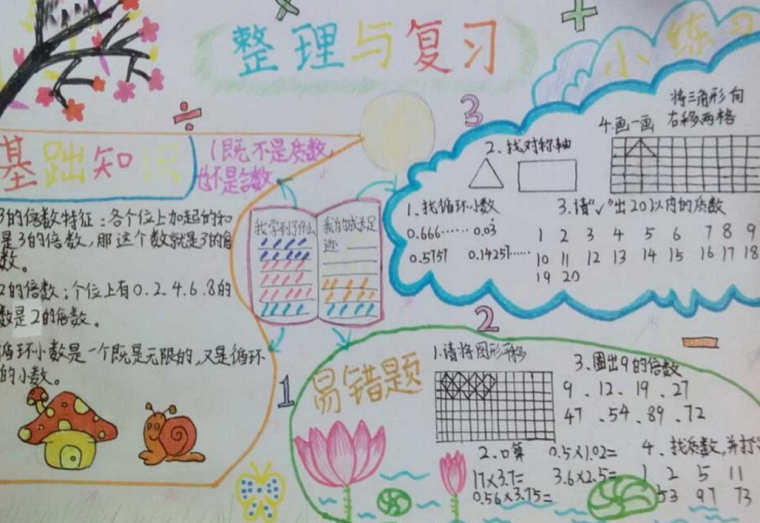 整理与复习
基础知识
(既不是质数,
也不是合数
3的倍数特征:各个位上加起的和
是3的倍数,那这个数就是3的倍
数。
2的倍数:个位上有0.2.4.6.8的
数是2的倍数。
循环小数是一个既是无限的,又是循环
的小数。
1
我学到了什么
我的成长足
迹
3
小练习
1.找循环小数
0.666…… 0.03
0.5757 0.14251……
2.找对称轴
3.请“✓”出20以内的质数
1 2 3 4 5 6 7 8 9
10 11 12 13 14 15 16 17 18
19 20
4.画一画
将三角形向
右移两格
2
易错题
1.请将图形平移
2.口算 0.5×1.02=
17×3.7= 3.6×2.5=
0.56×3.75=
3.圈出9的倍数
9 、12 、19 、27
47 、54 、89 、72
4、找质数,并打
1 2 5 11
53 97 73